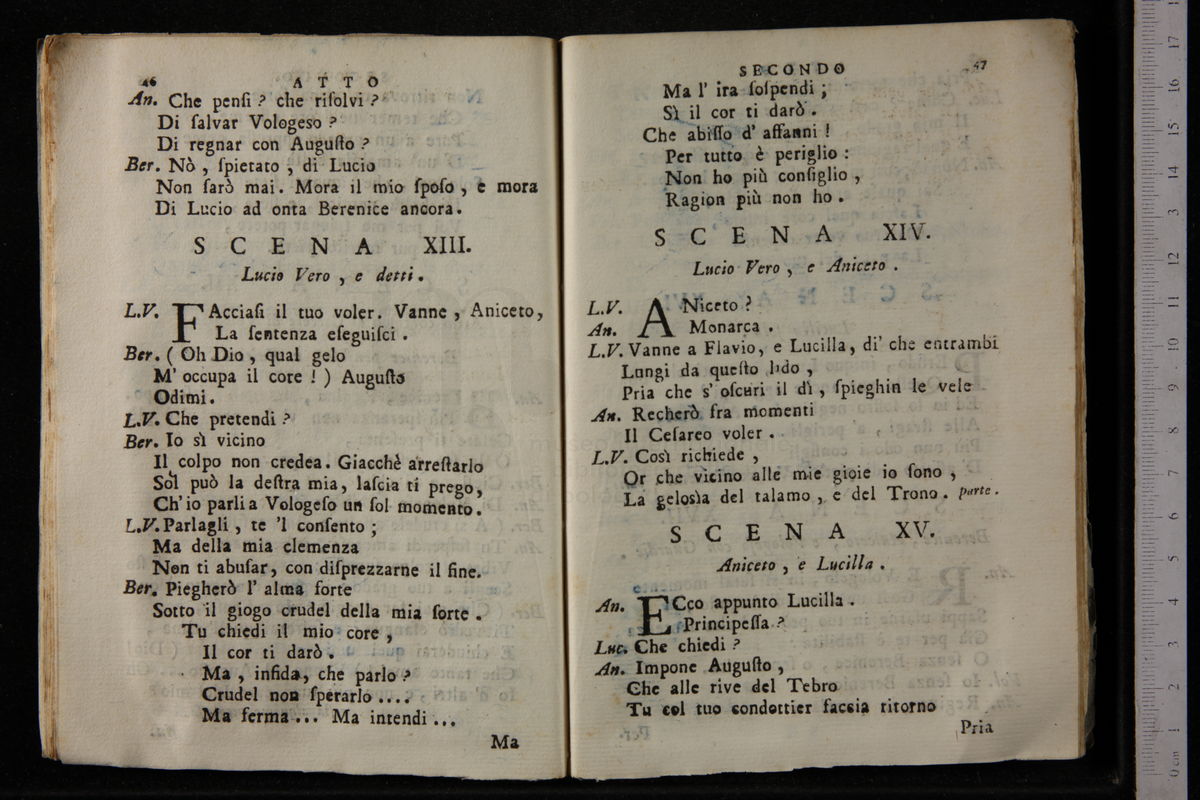 46 ATTO
An. Che penſi ? che riſolvi ?
Di ſalvar Vologeſo ?
Di regnar con Auguſto ?
Ber. Nò , ſpietato , di Lucio
Non ſarò mai. Mora il mio ſpoſo , e mora
Di Lucio ad onta Berenice ancora.
SCENA XIII.
Lucio Vero , e detti.
L.V. FAcciaſi il tuo voler. Vanne , Aniceto,
La ſentenza eſeguiſci .
Ber. ( Oh Dio , qual gelo
M' occupa il core ! ) Auguſto
Odimi.
L.V. Che pretendi ?
Ber. Io sì vicino
Il colpo non credea. Giacchè arreſtarlo
Sol può la deſtra mia, laſcia ti prego,
Ch'io parli a Vologeſo un ſol momento.
L.V. Parlagli , te 'l conſento ;
Ma della mia clemenza
Non ti abuſar, con diſprezzarne il fine.
Ber. Piegherò l' alma forte
Sotto il giogo crudel della mia ſorte .
Tu chiedi il mio core ,
Il cor ti darò .
Ma , infida, che parlo ?
Crudel non ſperarlo ....
Ma ferma ... Ma intendi ...
Ma
SECONDO 47
Ma l' ira ſoſpendi ;
Sì il cor ti darò .
Che abiſſo d' affanni !
Per tutto è periglio :
Non ho più conſiglio ,
Ragion più non ho .
SCENA XIV.
Lucio Vero , e Aniceto .
L.V. ANiceto ?
An. Monarca .
L.V. Vanne a Flavio, e Lucilla, di' che entrambi
Lungi da queſto lido ,
Pria che s' oſcuri il dì , ſpieghin le vele
An. Recherò fra momenti
Il Ceſareo voler .
L.V. Così richiede ,
Or che vicino alle mie gioie io ſono ,
La gelosìa del talamo , e del Trono . parte.
SCENA XV.
Aniceto , e Lucilla .
An. ECco appunto Lucilla .
Principeſſa ?
Luc. Che chiedi ?
An. Impone Auguſto ,
Che alle rive del Tebro
Tu col tuo condottier faccia ritorno
Pria